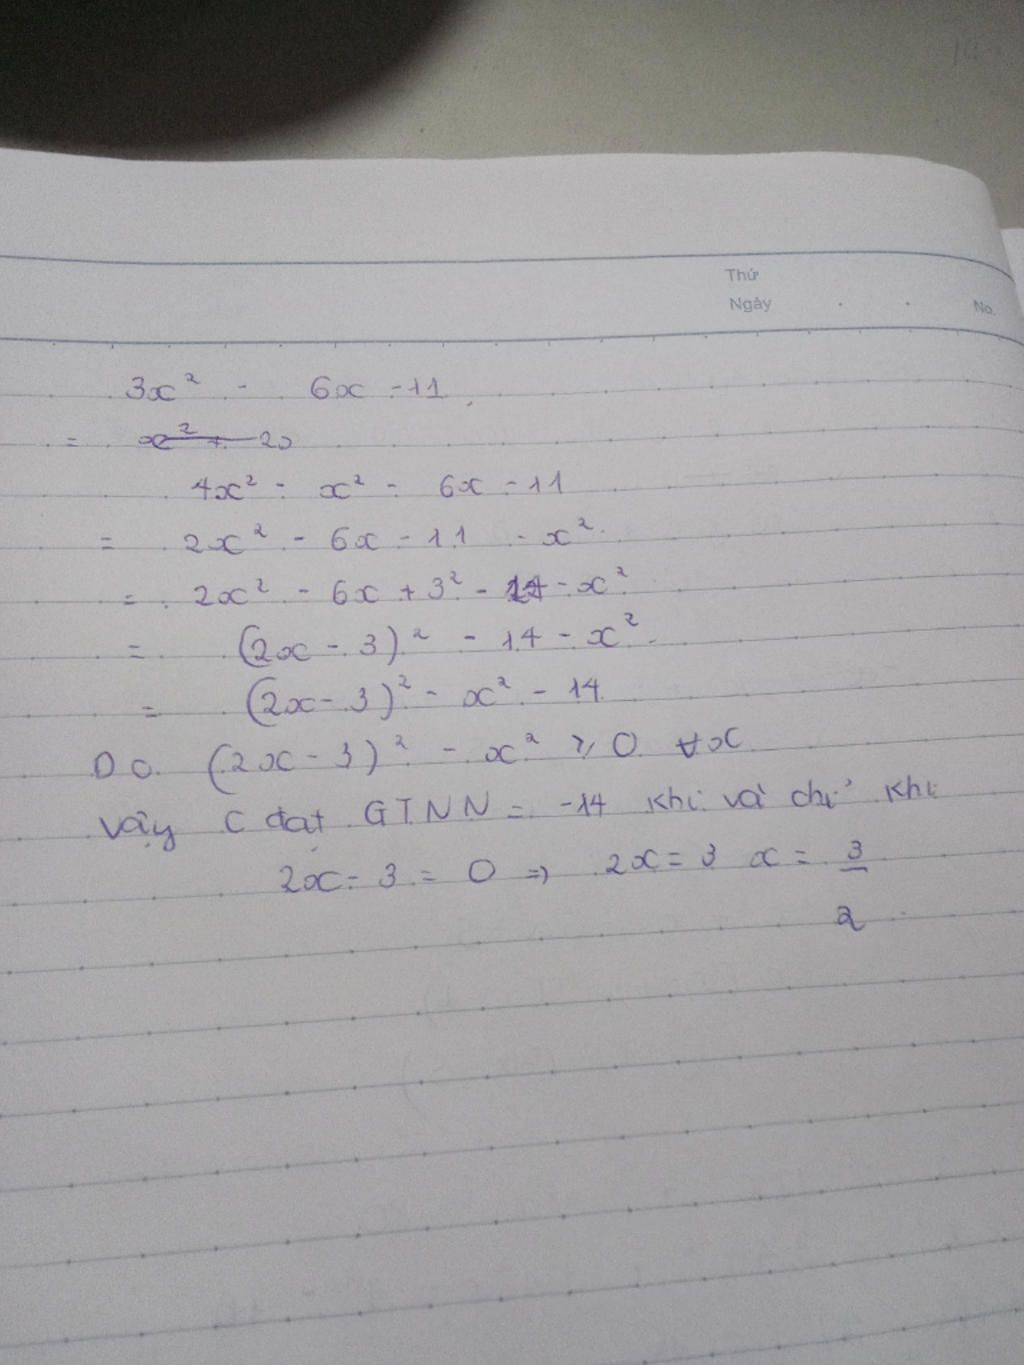 Thứ
Ngày . . No.
3x² - 6x - 11
= x² + 20
4x² - x² - 6x - 11
= 2x² - 6x - 11 - x²
= 2x² - 6x + 3² - - x²
= (2x - 3)² - 14 - x²
= (2x - 3)² - x² - 14
Do (2x - 3)² - x² ⩾ 0 ∀x
Vậy C đạt GTNN = -14 khi và chỉ khi
2x - 3 = 0 => 2x = 3 x = 3/2